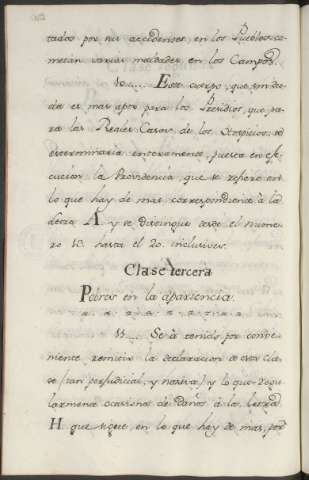 tados por no accidentes, en los Pueblos co-
metan varias maldades en los Campos.
10..... Este cuerpo, que sin du-
da es mas apto para los Presidios, que pa-
ra las Reales Casas de los Hospicios, se
determinaria enteramente, puesta en efe-
cucion la Providencia, que se refiere en
lo que hay de mas correspondiente â la
letra A. y se distingue desde el nume-
ro 10. hasta el 20. inclusives.
Clase tercera
Pobres en la apariencia.
11.... Se â tenido por conve-
mente remitir la declaracion de esta Cla-
se (tan perjudicial, y nociva) y lo que regu-
larmente ocasiona de daños â la letra
H que sigue, en lo que hay de mas, por